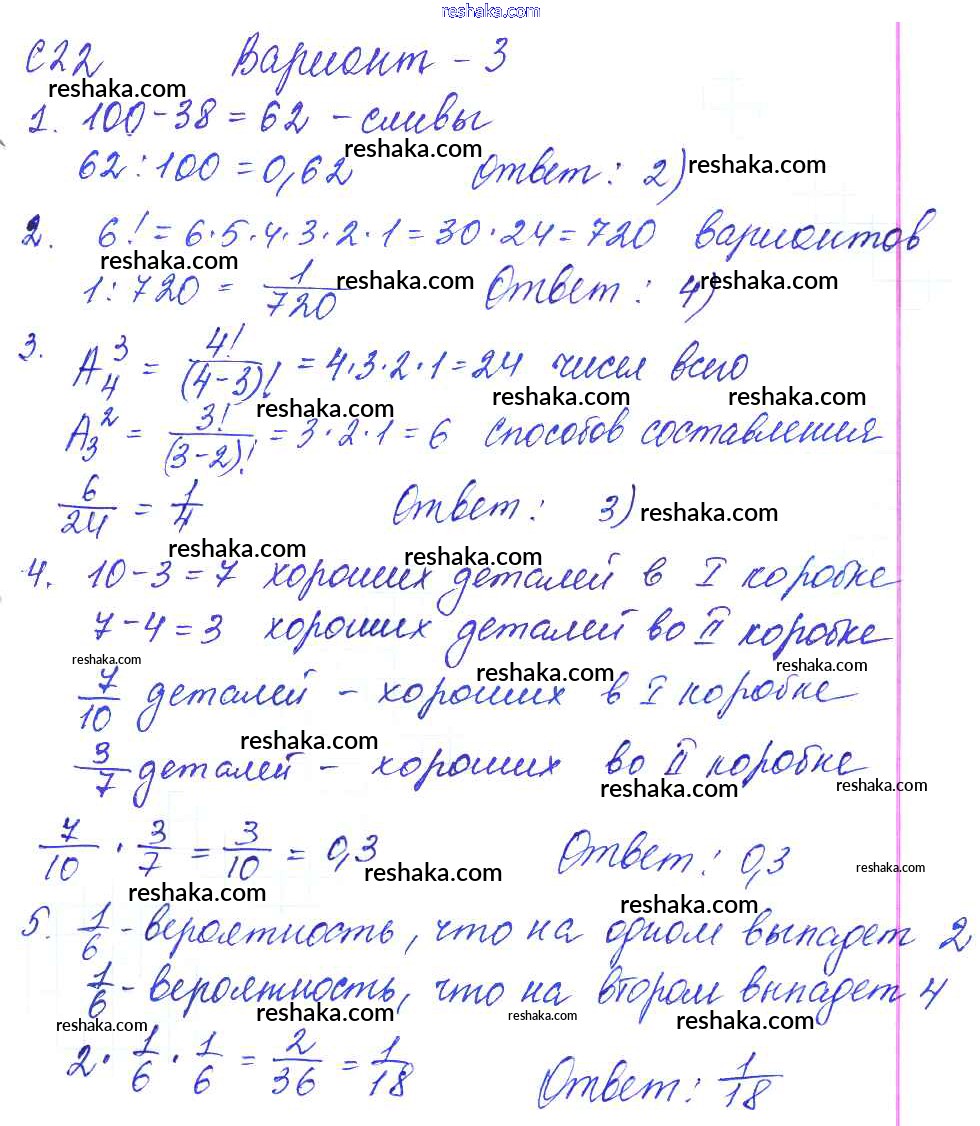 reshaka.com
С22 Вариант - 3
reshaka.com
1. 100-38 = 62 - сливы
reshaka.com
62 : 100 = 0,62 Ответ: 2) reshaka.com
2. 6! = 6·5·4·3·2·1 = 30·24 = 720 вариантов
reshaka.com
1 : 720 = 1/720 reshaka.com Ответ: 4) reshaka.com
3. A₄³ = 4!/(4-3)! = 4·3·2·1 = 24 чисел всего
reshaka.com reshaka.com reshaka.com
A₃² = 3!/(3-2)! = 3·2·1 = 6 способов составления
6/24 = 1/4 Ответ: 3) reshaka.com
reshaka.com reshaka.com
4. 10-3 = 7 хороших деталей в I коробке
7-4 = 3 хороших деталей во II коробке
reshaka.com reshaka.com reshaka.com
7/10 деталей - хороших в I коробке
reshaka.com
3/7 деталей - хороших во II коробке
reshaka.com reshaka.com
7/10 · 3/7 = 3/10 = 0,3 Ответ: 0,3
reshaka.com reshaka.com reshaka.com
reshaka.com
5. 1/6 - вероятность, что на одном выпадет 2
1/6 - вероятность, что на втором выпадет 4
reshaka.com reshaka.com reshaka.com reshaka.com
2 · 1/6 · 1/6 = 2/36 = 1/18 Ответ: 1/18